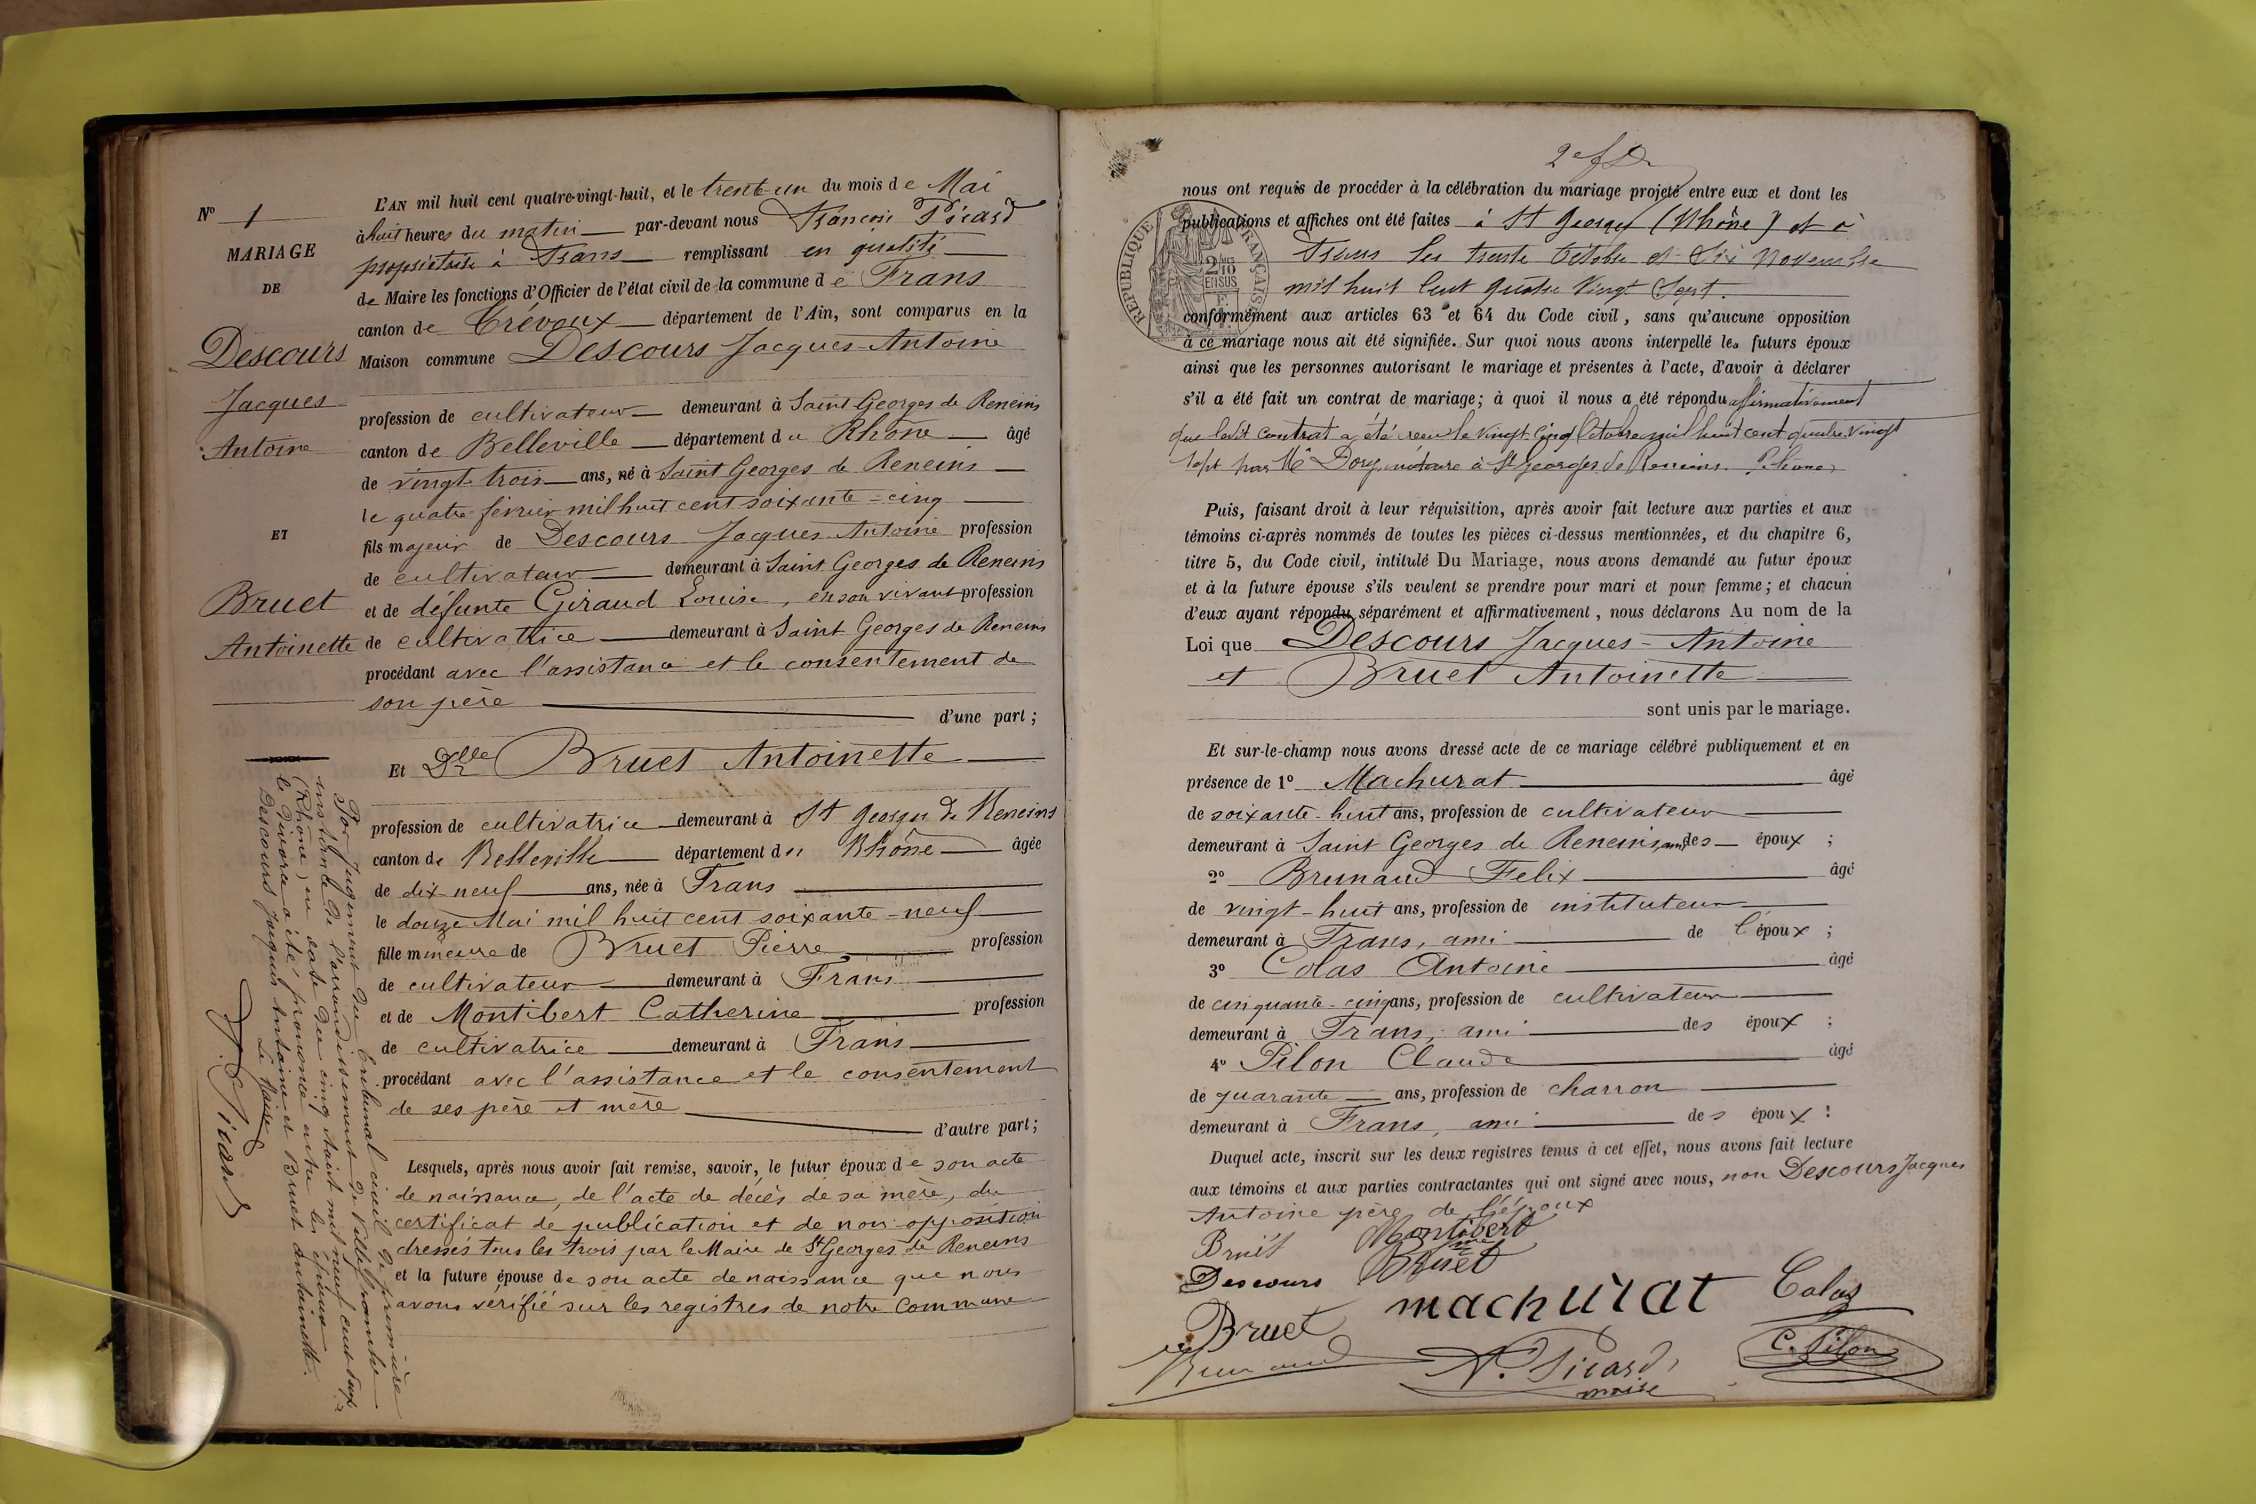 N° 1
MARIAGE
DE
Descours
Jacques
Antoine
ET
Bruet
Antoinette
L'AN mil huit cent quatre-vingt-huit, et le trente un du mois de Mai
à huit heures du matin par-devant nous François Picard
propriétaire à Frans remplissant en qualité
de Maire les fonctions d'Officier de l'état civil de la commune de Frans
canton de Trévoux département de l'Ain, sont comparus en la
Maison commune Descours Jacques-Antoine
profession de cultivateur demeurant à Saint Georges de Reneins
canton de Belleville département du Rhône âgé
de vingt-trois ans, né à Saint Georges de Reneins
le quatre février mil huit cent soixante-cinq
fils majeur de Descours Jacques Antoine profession
de cultivateur demeurant à Saint Georges de Reneins
et de défunte Giraud Louise, en son vivant profession
de cultivatrice demeurant à Saint Georges de Reneins
procédant avec l'assistance et le consentement de
son père d'une part;
Et Dlle Bruet Antoinette
profession de cultivatrice demeurant à St Georges de Reneins
canton de Belleville département du Rhône âgée
de dix neuf ans, née à Frans
le douze Mai mil huit cent soixante-neuf
fille mineure de Bruet Pierre profession
de cultivateur demeurant à Frans
et de Montibert Catherine profession
de cultivatrice demeurant à Frans
procédant avec l'assistance et le consentement
de ses père et mère
d'autre part;
Lesquels, après nous avoir fait remise, savoir, le futur époux de son acte
de naissance, de l'acte de décès de sa mère, du
certificat de publication et de non-opposition
dressés tous les trois par le Maire de St Georges de Reneins
et la future épouse de son acte de naissance que nous
avons vérifié sur les registres de notre commune
Par Jugement du tribunal civil de première
instance de l'arrondissement de Villefranche
(Rhône) en date du cinq Mil neuf cent sept
le divorce a été prononcé entre les époux
Descours Jacques Antoine et Bruet Antoinette.
Le Maire
Picard
2e f
nous ont requis de procéder à la célébration du mariage projeté entre eux et dont les
publications et affiches ont été faites à St Georges (Rhône) et à
Frans les trente Octobre et six Novembre
mil huit cent quatre vingt sept.
conformément aux articles 63 et 64 du Code civil, sans qu'aucune opposition
à ce mariage nous ait été signifiée. Sur quoi nous avons interpellé les futurs époux
ainsi que les personnes autorisant le mariage et présentes à l'acte, d'avoir à déclarer
s'il a été fait un contrat de mariage; à quoi il nous a été répondu affirmativement
que ledit contrat a été reçu le vingt cinq Octobre mil huit cent quatre vingt
sept par Me notaire à St Georges de Reneins Rhône
RÉPUBLIQUE FRANÇAISE
2/10 EN SUS
Puis, faisant droit à leur réquisition, après avoir fait lecture aux parties et aux
témoins ci-après nommés de toutes les pièces ci-dessus mentionnées, et du chapitre 6,
titre 5, du Code civil, intitulé Du Mariage, nous avons demandé au futur époux
et à la future épouse s'ils veulent se prendre pour mari et pour femme; et chacun
d'eux ayant répondu séparément et affirmativement, nous déclarons Au nom de la
Loi que Descours Jacques-Antoine
et Bruet Antoinette
sont unis par le mariage.
Et sur-le-champ nous avons dressé acte de ce mariage célébré publiquement et en
présence de 1° Machurat âgé
de soixante-huit ans, profession de cultivateur
demeurant à Saint Georges de Reneins, ami des époux ;
2° Brunaud Felix âgé
de vingt-huit ans, profession de instituteur
demeurant à Frans, ami de l'époux ;
3° Colas Antoine âgé
de cinquante-cinq ans, profession de cultivateur
demeurant à Frans, ami des époux ;
4° Pilon Claude âgé
de quarante ans, profession de charron
demeurant à Frans, ami des époux :
Duquel acte, inscrit sur les deux registres tenus à cet effet, nous avons fait lecture
aux témoins et aux parties contractantes qui ont signé avec nous, non Descours Jacques
Antoine père de l'époux
Bruet Montibert
fme Bruet
Descours
machurat Colas
Bruet
Brunaud
Picard
maire
C. Pilon